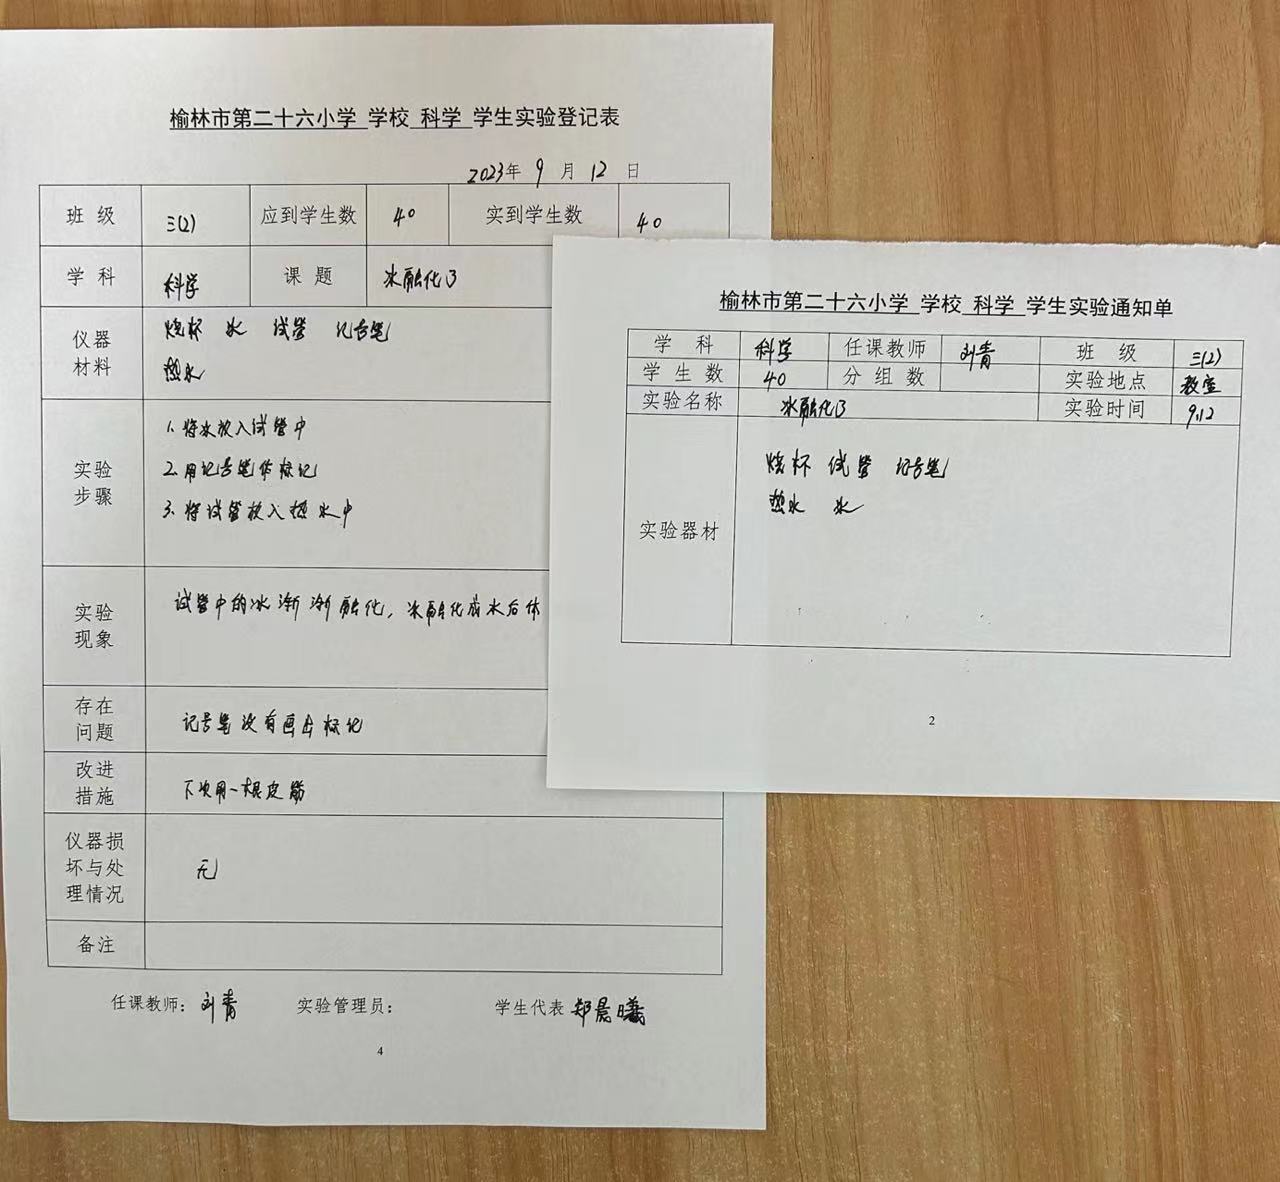 榆林市第二十六小学 学校 科学 学生实验登记表
2023年 9 月 12 日
班 级 三(2) 应到学生数 40 实到学生数 40
学 科 科学 课 题 冰融化了
仪器材料 烧杯 冰 试管 记号笔
热水
实验步骤 1. 将冰放入试管中
2. 用记号笔作标记
3. 将试管放入热水中
实验现象 试管中的冰渐渐融化，冰融化成水后体
存在问题 记号笔没有画出标记
改进措施 下次用一根皮筋
仪器损坏与处理情况 无
备注
任课教师：刘青 实验管理员： 学生代表 郑晨曦
4
榆林市第二十六小学 学校 科学 学生实验通知单
学 科 科学 任课教师 刘青 班 级 三(2)
学 生 数 40 分 组 数 实验地点 教室
实验名称 冰融化了 实验时间 9.12
实验器材 烧杯 试管 记号笔
热水 冰
2